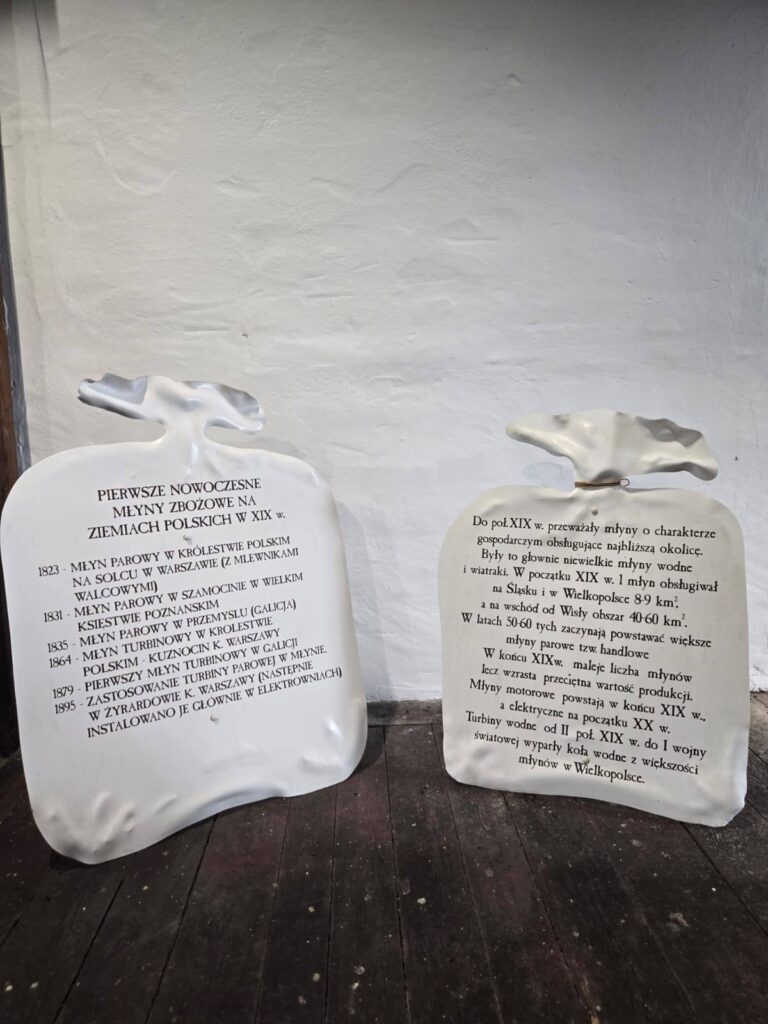 PIERWSZE NOWOCZESNE
MŁYNY ZBOŻOWE NA
ZIEMIACH POLSKICH W XIX w.
1823 - MŁYN PAROWY W KRÓLESTWIE POLSKIM
NA SOLCU W WARSZAWIE (Z MLEWNIKAMI
WALCOWYMI)
1831 - MŁYN PAROWY W SZAMOCINIE W WIELKIM
KSIESTWIE POZNANSKIM
1835 - MŁYN PAROWY W PRZEMYSLU (GALICJA)
1864 - MŁYN TURBINOWY W KROLESTWIE
POLSKIM - KUZNOCIN K. WARSZAWY
1879 - PIERWSZY MŁYN TURBINOWY W GALICJI
1895 - ZASTOSOWANIE TURBINY PAROWEJ W MŁYNIE.
W ŻYRARDOWIE K. WARSZAWY (NASTĘPNIE
INSTALOWANO JE GŁOWNIE W ELEKTROWNIACH)
Do poł.XIX w. przeważały młyny o charakterze
gospodarczym obsługujące najbliższą okolicę.
Były to głownie niewielkie młyny wodne
i wiatraki. W początku XIX w. 1 młyn obsługiwał
na Śląsku i w Wielkopolsce 8-9 km²,
a na wschód od Wisły obszar 40-60 km².
W latach 50-60 tych zaczynają powstawać większe
młyny parowe tzw. handlowe
W końcu XIXw. maleje liczba młynów
lecz wzrasta przeciętna wartość produkcji.
Młyny motorowe powstają w końcu XIX w.,
a elektryczne na początku XX w.
Turbiny wodne od II poł. XIX w. do I wojny
światowej wyparły koła wodne z większości
młynów w Wielkopolsce.